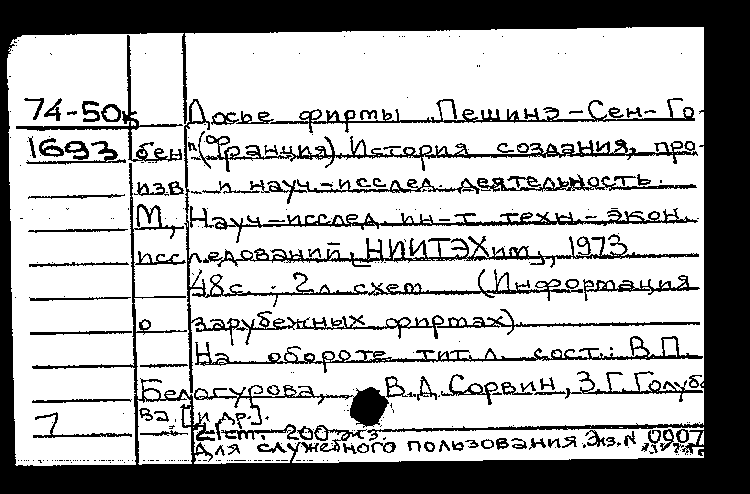 74-50к Досье фирмы "Пешинэ-Сен-Го-
1693 бен" (Франция). История создания, про-
изв. и науч.-исслед. деятельность.
М., Науч-исслед. ин-т техн.-экон.
исследований „НИИТЭХим", 1973.
48с.; 2л. схем (Информация
о зарубежных фирмах)
На обороте тит. л. сост.: В.П.
Белогурова, В.Д. Сорвин, З.Г. Голубе
ва [и др.].
7 200 экз.
Для служебного пользования. Экз. N 0007